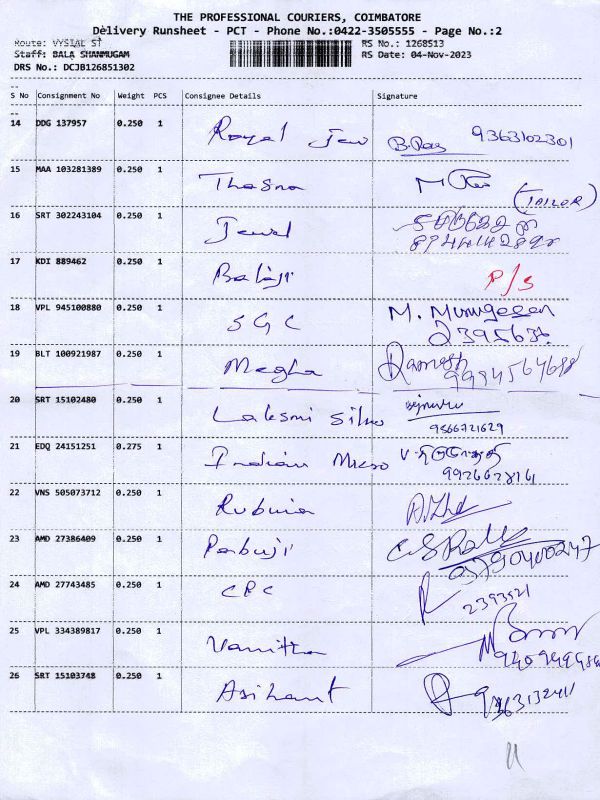 THE PROFESSIONAL COURIERS, COIMBATORE
Delivery Runsheet - PCT - Phone No.:0422-3505555 - Page No.:2
Route: VYSIAL ST RS No.: 1268513
Staff: BALA SHANMUGAM RS Date: 04-Nov-2023
DRS No.: DCJB126851302
S No Consignment No Weight PCS Consignee Details Signature
14 DDG 137957 0.250 1 Royal Jew 9363102301
15 MAA 103281389 0.250 1 Thasna (TAILOR)
16 SRT 302243104 0.250 1 Jewel
17 KDI 889462 0.250 1 Balaji P/S
18 VPL 945100880 0.250 1 SGC M. Murugesan
19 BLT 100921987 0.250 1 Megha Ramesh
20 SRT 15102480 0.250 1 Laksmi Silver
9566721629
21 EDQ 24151251 0.275 1 Indian Micro
22 VNS 505073712 0.250 1 Rubina
23 AMD 27386409 0.250 1 Pabuji
24 AMD 27743485 0.250 1 CPC
25 VPL 334389817 0.250 1 Vanitha
26 SRT 15103748 0.250 1 Asihant